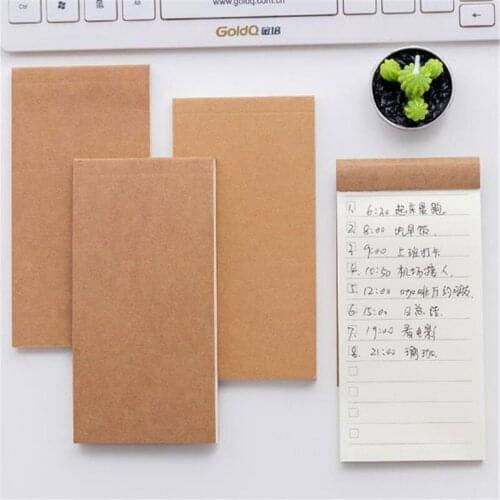 www.goldq.com.cn
Ctrl Alt
GoldQ 金培
1. 6:30 起床晨跑.
2. 8:00 吃早饭.
3. 9:00 上班打卡
4. 10:50 机场接人.
5. 12:00 咖啡厅约
6. 15:00 日总结.
7. 19:00 看电影
8. 21:00 瑜伽.